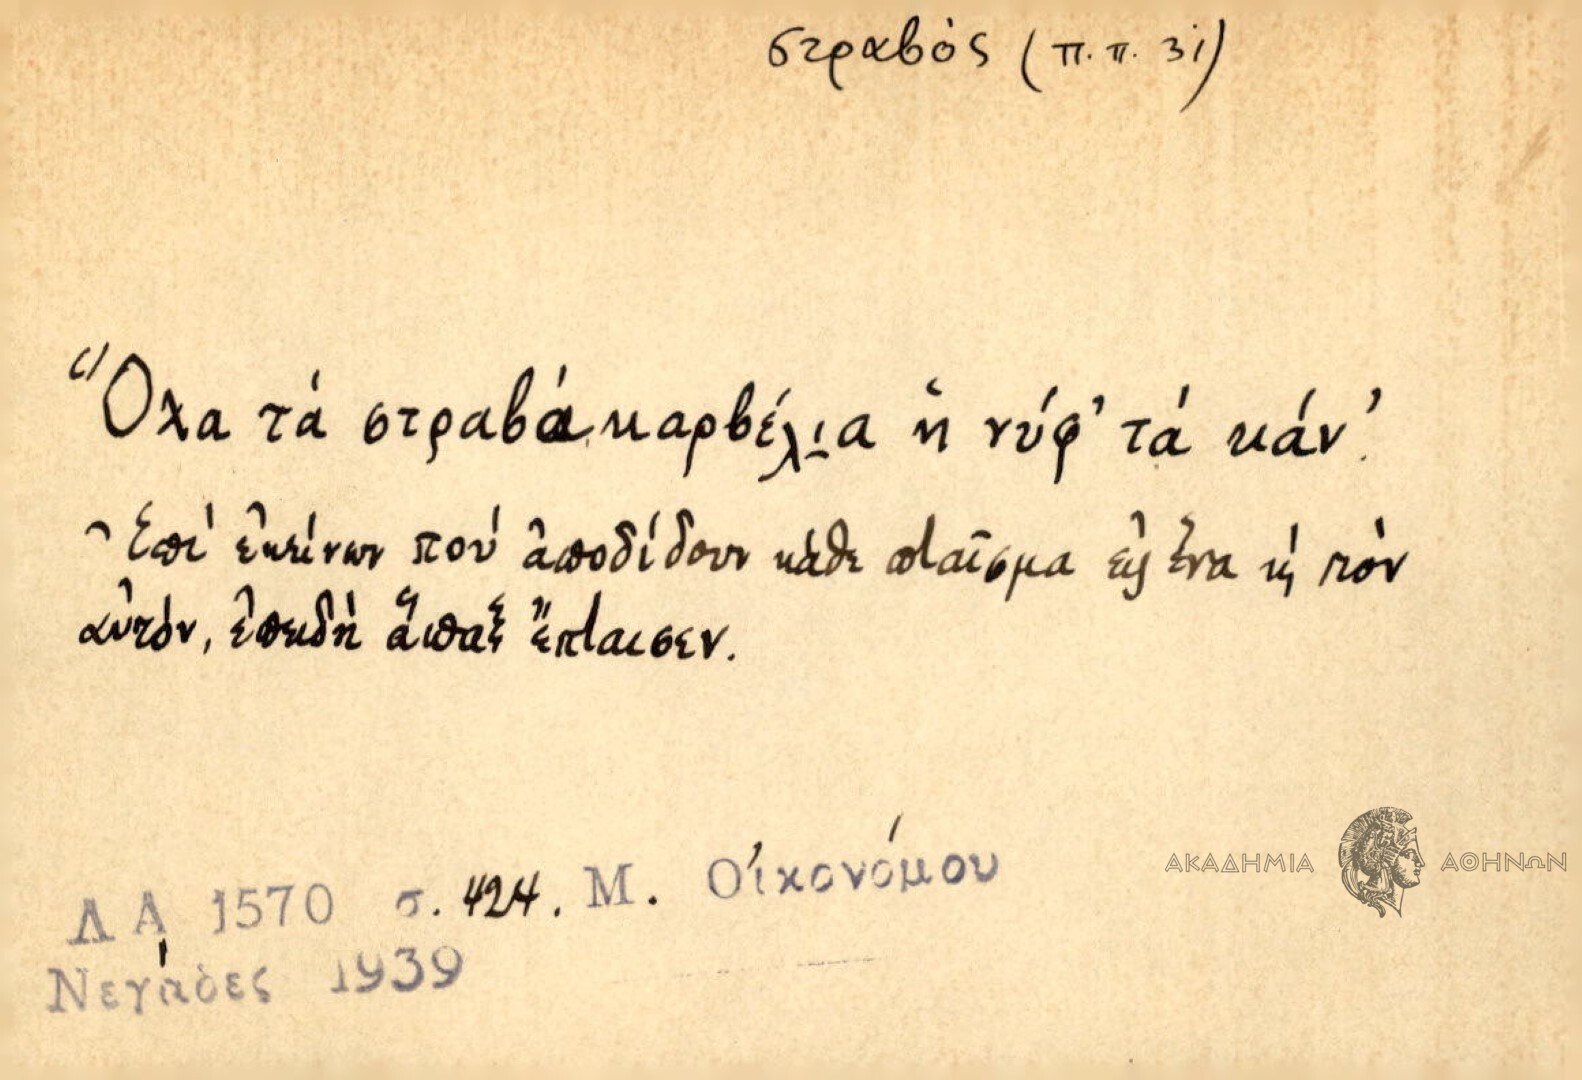 στραβός (π.π. 31)
Ὅλα τά στραβά καρβέλια ἡ νύφ' τά κάν'.
Ἐπί ἐκείνων πού ἀποδίδουν κάθε πταῖσμα εἰς ἕνα καί τὸν
αὐτόν, ἐπειδή ἅπαξ ἔπταισεν.
ΛΑ 1570 σ. 424. Μ. Οἰκονόμου
Νεγάδες 1939
ΑΚΑΔΗΜΙΑ ΑΘΗΝΩΝ